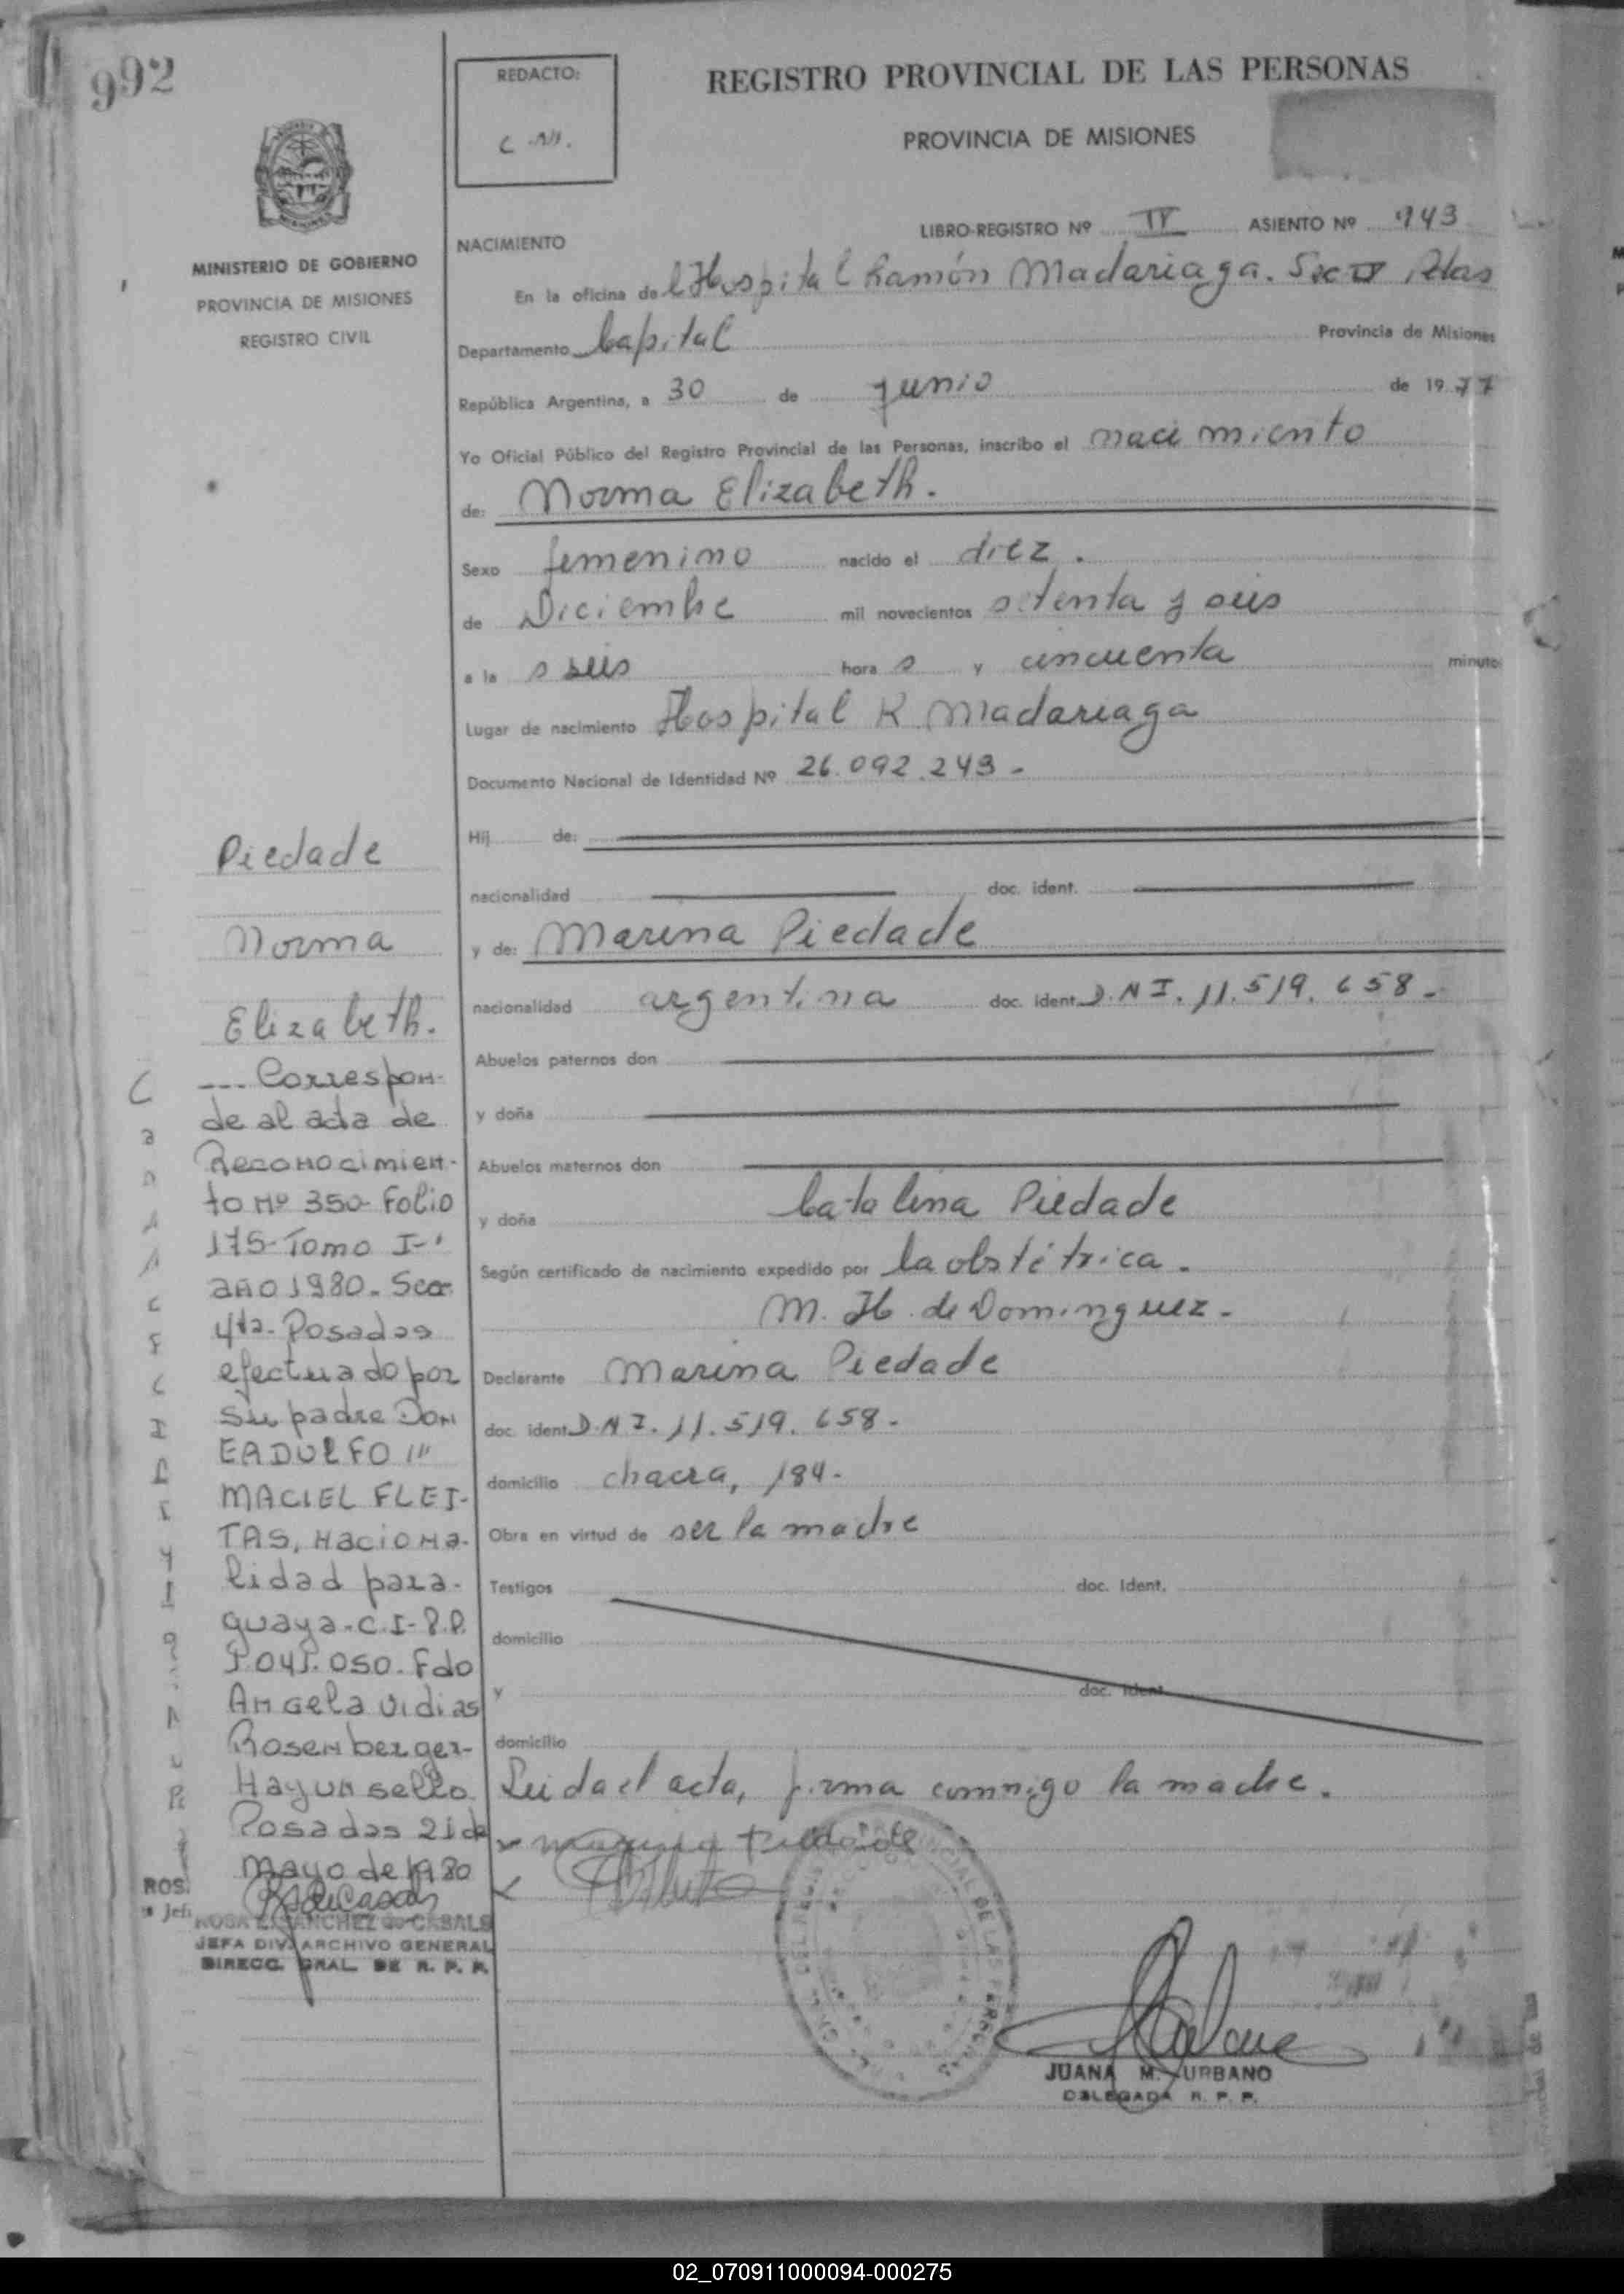 992
REDACTO:
REGISTRO PROVINCIAL DE LAS PERSONAS
PROVINCIA DE MISIONES
MINISTERIO DE GOBIERNO
PROVINCIA DE MISIONES
REGISTRO CIVIL
LIBRO-REGISTRO Nº IV ASIENTO Nº 943
NACIMIENTO
En la oficina de l Hospital Ramón Madariaga. Sec IV Pdas
Departamento Capital Provincia de Misiones
República Argentina, a 30 de junio de 1977
Yo Oficial Público del Registro Provincial de las Personas, inscribo el nacimiento
de: Norma Elizabeth.
Sexo femenino nacido el diez.
de Diciembre mil novecientos setenta y seis
a la s seis hora s y cincuenta minutos
Lugar de nacimiento Hospital R Madariaga
Documento Nacional de Identidad Nº 26.092.243-
Hij de:
nacionalidad doc. ident.
y de: Marina Piedade
nacionalidad argentina doc. ident. D.N I. 11.519.658-
Abuelos paternos don
y doña
Abuelos maternos don
y doña Catalina Piedade
Según certificado de nacimiento expedido por la obstétrica.
M. H. de Dominguez-
Declarante Marina Piedade
doc. ident. D.N I. 11.519.658-
domicilio chacra, 184-
Obra en virtud de ser la madre
Testigos doc. Ident.
domicilio
y doc. ident.
domicilio
Leida el acta, firma conmigo la madre.
Marina Piedade
JUANA M. URBANO
DELEGADA R. P. P.
Piedade
Norma
Elizabeth.
--- Correspon-
de al acta de
Reconocimien-
to Nº 350-Folio
175-Tomo I-
año 1980. Secc
4ta-Posadas
efectuado por
su padre Don
EADULFO
MACIEL FLEI-
TAS, Naciona-
lidad para-
guaya-C.I-P.P.
Fdo
Angela Vidias
Rosenberger-
Hay un sello
Posadas 21 de
Mayo de 1980
ROSA E. SANCHEZ de CASALS
JEFA DIV. ARCHIVO GENERAL
DIRECC. GRAL. DE R. P. P.
02_070911000094-000275